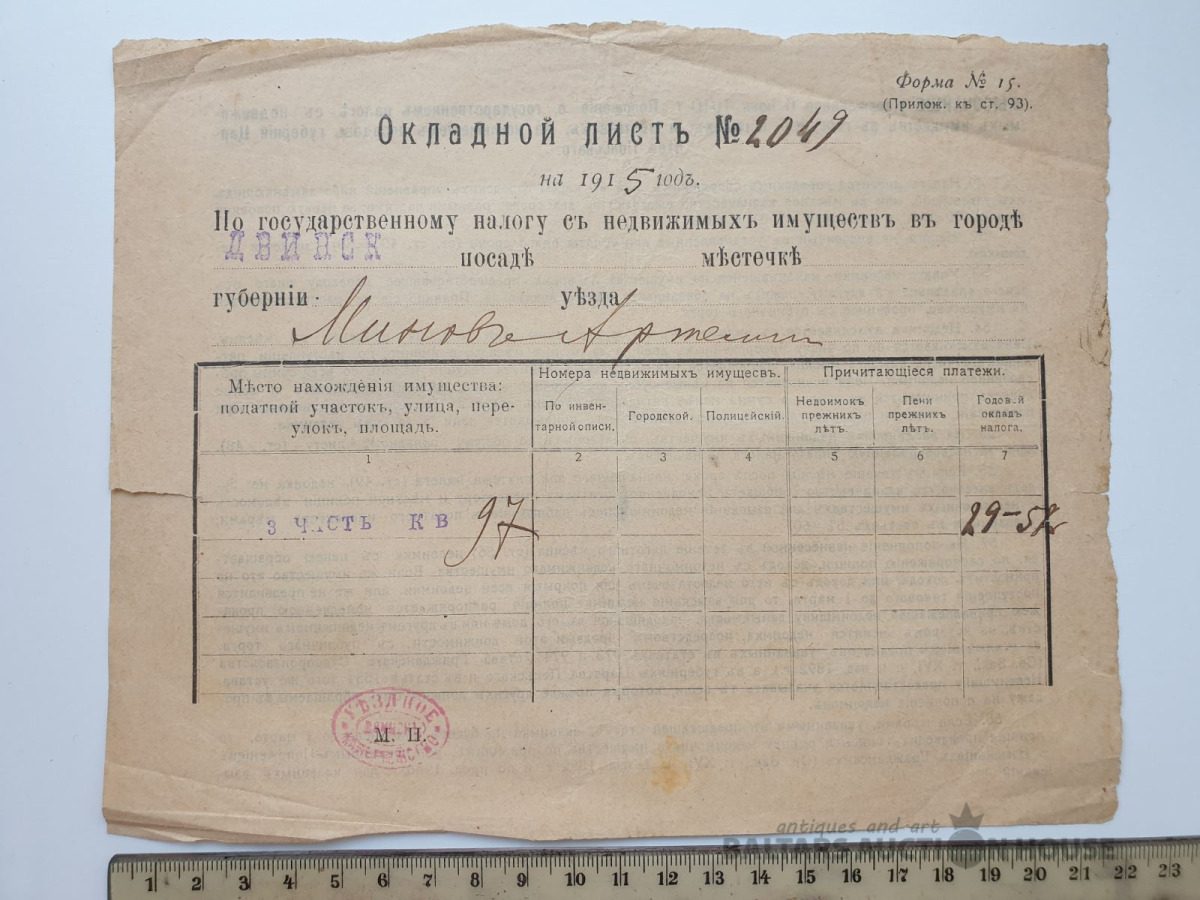 Форма № 15.
(Прилож. къ ст. 93).
Окладной листъ № 2049
на 1915 годъ.
По государственному налогу съ недвижимыхъ имуществъ въ городѣ
ДВИНСК посадѣ мѣстечкѣ
губерніи уѣзда
Миновъ Артемий
Мѣсто нахожденія имущества: податной участокъ, улица, пере-улокъ, площадь.
Номера недвижимыхъ имущесвъ.
Причитающіеся платежи.
По инвен-тарной описи.
Городской.
Полицейскій.
Недоимокъ прежнихъ лѣтъ.
Пени прежнихъ лѣтъ.
Годовой окладъ налога.
1 2 3 4 5 6 7
3 ЧАСТЬ КВ 97 29-52
УѢЗДНОЕ
КАЗНАЧЕЙСТВО
М. П.
antiques and art
BALTARS AUCTION HOUSE
1 2 3 4 5 6 7 8 9 10 11 12 13 14 15 16 17 18 19 20 21 22 23